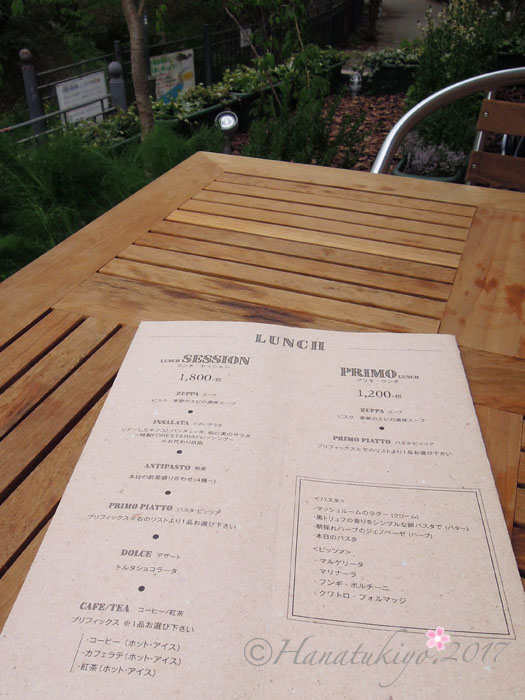 LUNCH
LUNCH SESSION
ランチ・セッション
1,800+税
ZUPPA スープ
ビスク 季節のエビの濃厚スープ
INSALATA
ソテーしたキノコとパンチェッタ、松の実のサラダ
~特製FORESTARIAドレッシング~
※お代わり自由
ANTIPASTO 前菜
本日の前菜盛り合わせ(4種~)
PRIMO PIATTO パスタ・ピッツァ
プリフィックス※右のリストより1品お選び下さい
DOLCE デザート
トルタショコラータ
CAFE/TEA コーヒー/紅茶
プリフィックス ※1品お選び下さい
・コーヒー(ホット・アイス)
・カフェラテ(ホット・アイス)
・紅茶(ホット・アイス)
PRIMO LUNCH
プリモ・ランチ
1,200+税
ZUPPA スープ
ビスク 季節のエビの濃厚スープ
PRIMO PIATTO パスタ・ピッツァ
プリフィックス※下のリストより1品お選び下さい
<パスタ>
・マッシュルームのラグー(クリーム)
・黒トリュフの香りをシンプルな卵パスタで(バター)
・朝採れハーブのジェノベーゼ(ハーブ)
・本日のパスタ
<ピッツァ>
・マルゲリータ
・マリナーラ
・フンギ・ポルチーニ
・クワトロ・フォルマッジ
©Hanatukiyo.2017